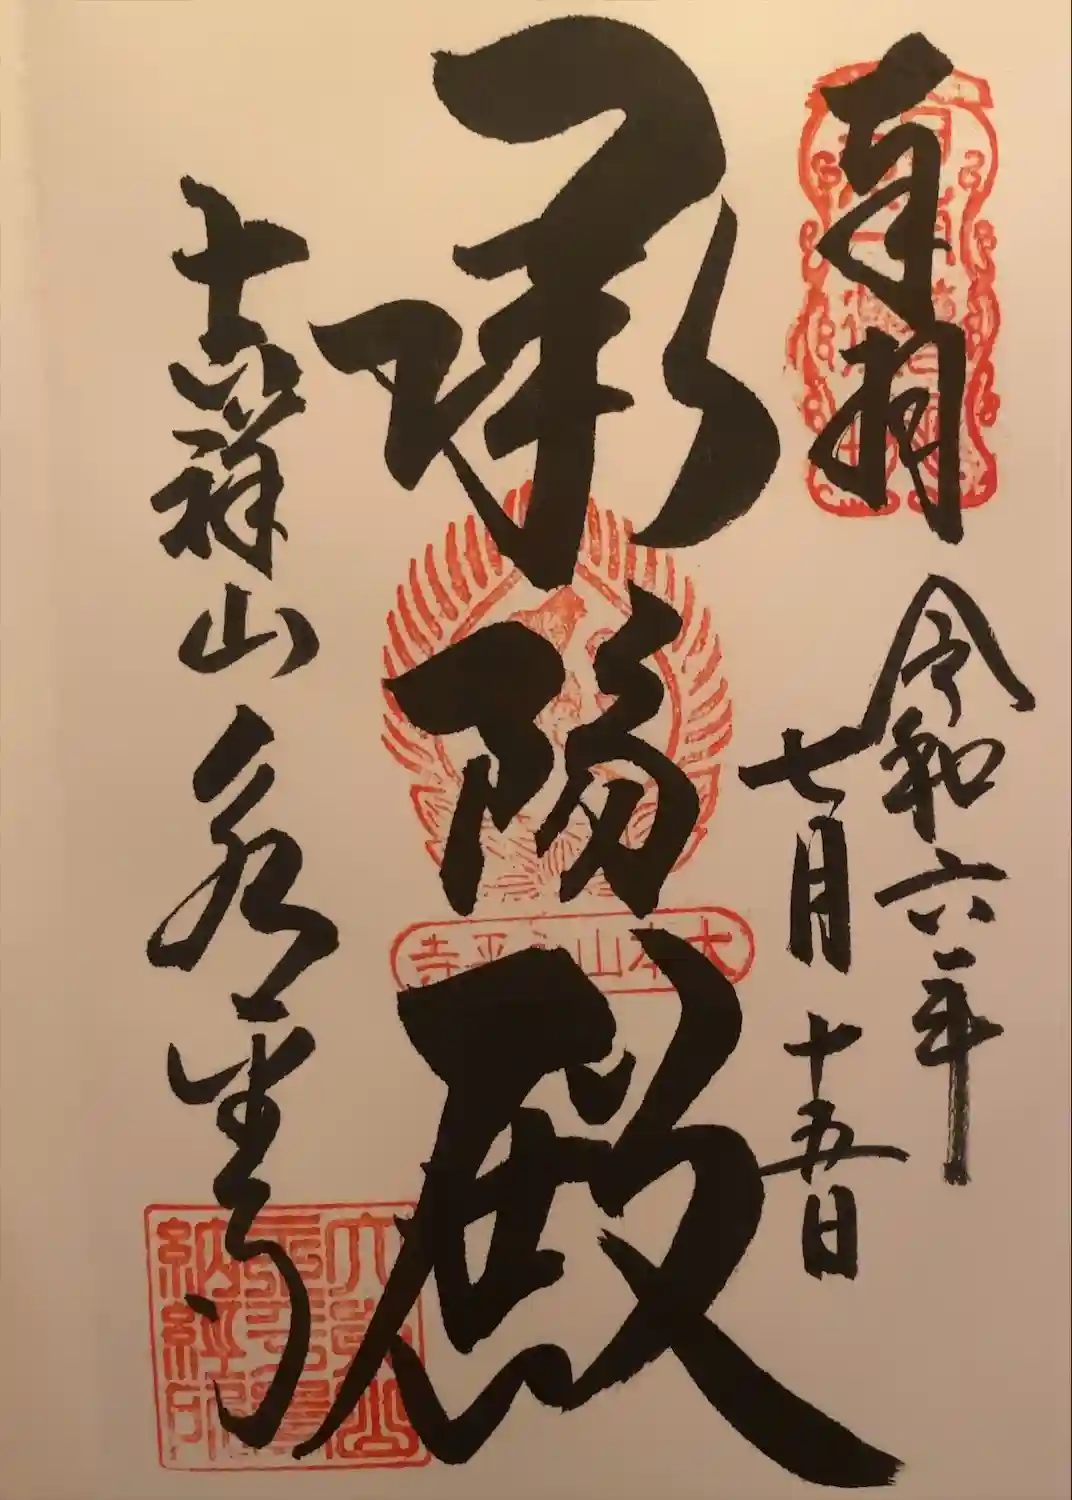 奉拝
令和六年
七月十五日
承陽殿
大本山永平寺
吉祥山永平寺
納経所